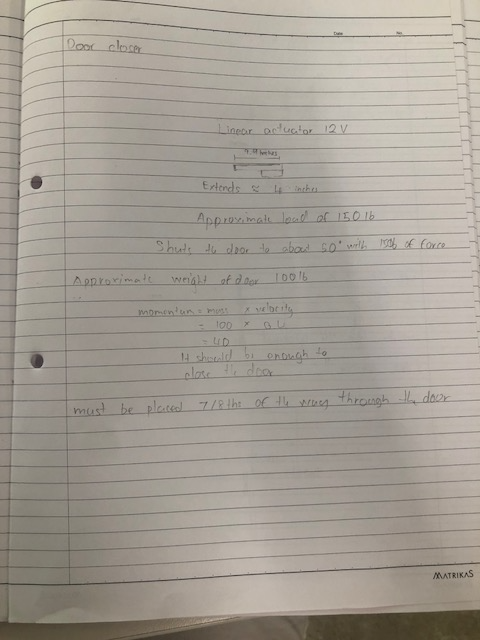 Date No.
Door closer
Linear actuator 12V
inches
Extends ≈ 4 inches
Approximate load of 150 lb
Shuts the door to about 50° with of force
Approximate weight of door 100lb
momentum = mass x velocity
= 100 x
= 40
It should be enough to
close the door
must be placed 7/8ths of the way through the door
MATRIKAS